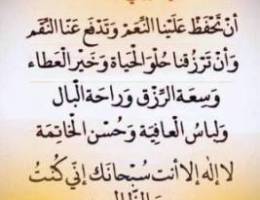 أنْ تَحْفَظَ عَلَيْنَا النِّعَمْ وَتَدْفَع عَنَّا النِّقَم
وَأنْ تَرْزُقنَا حُلوَ الْحَيَاة وَخَيْر الْعَطَاء
وَسِعَة الرِّزْق وَرَاحَة الْبَال
وَلِبَاسُ الْعَافِيَة وَحُسْن الْخَاتِمَة
لَا إلٰه إلَّا أنت سُبْحَانَك إنِّي كُنْتُ